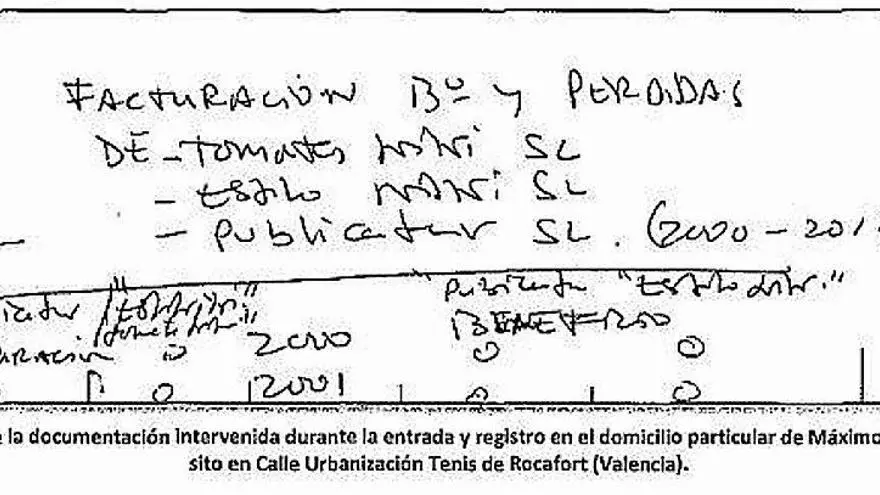 FACTURACIÓN Bº y PERDIDAS
DE - TOMATES NANI SL
- ESTILO NANI SL
- PUBLICATUR SL. (2000 - 201
2000 BENEFICIO
0 0 0
0 2001 0 0
e la documentación intervenida durante la entrada y registro en el domicilio particular de Máximo
sito en Calle Urbanización Tenis de Rocafort (Valencia).